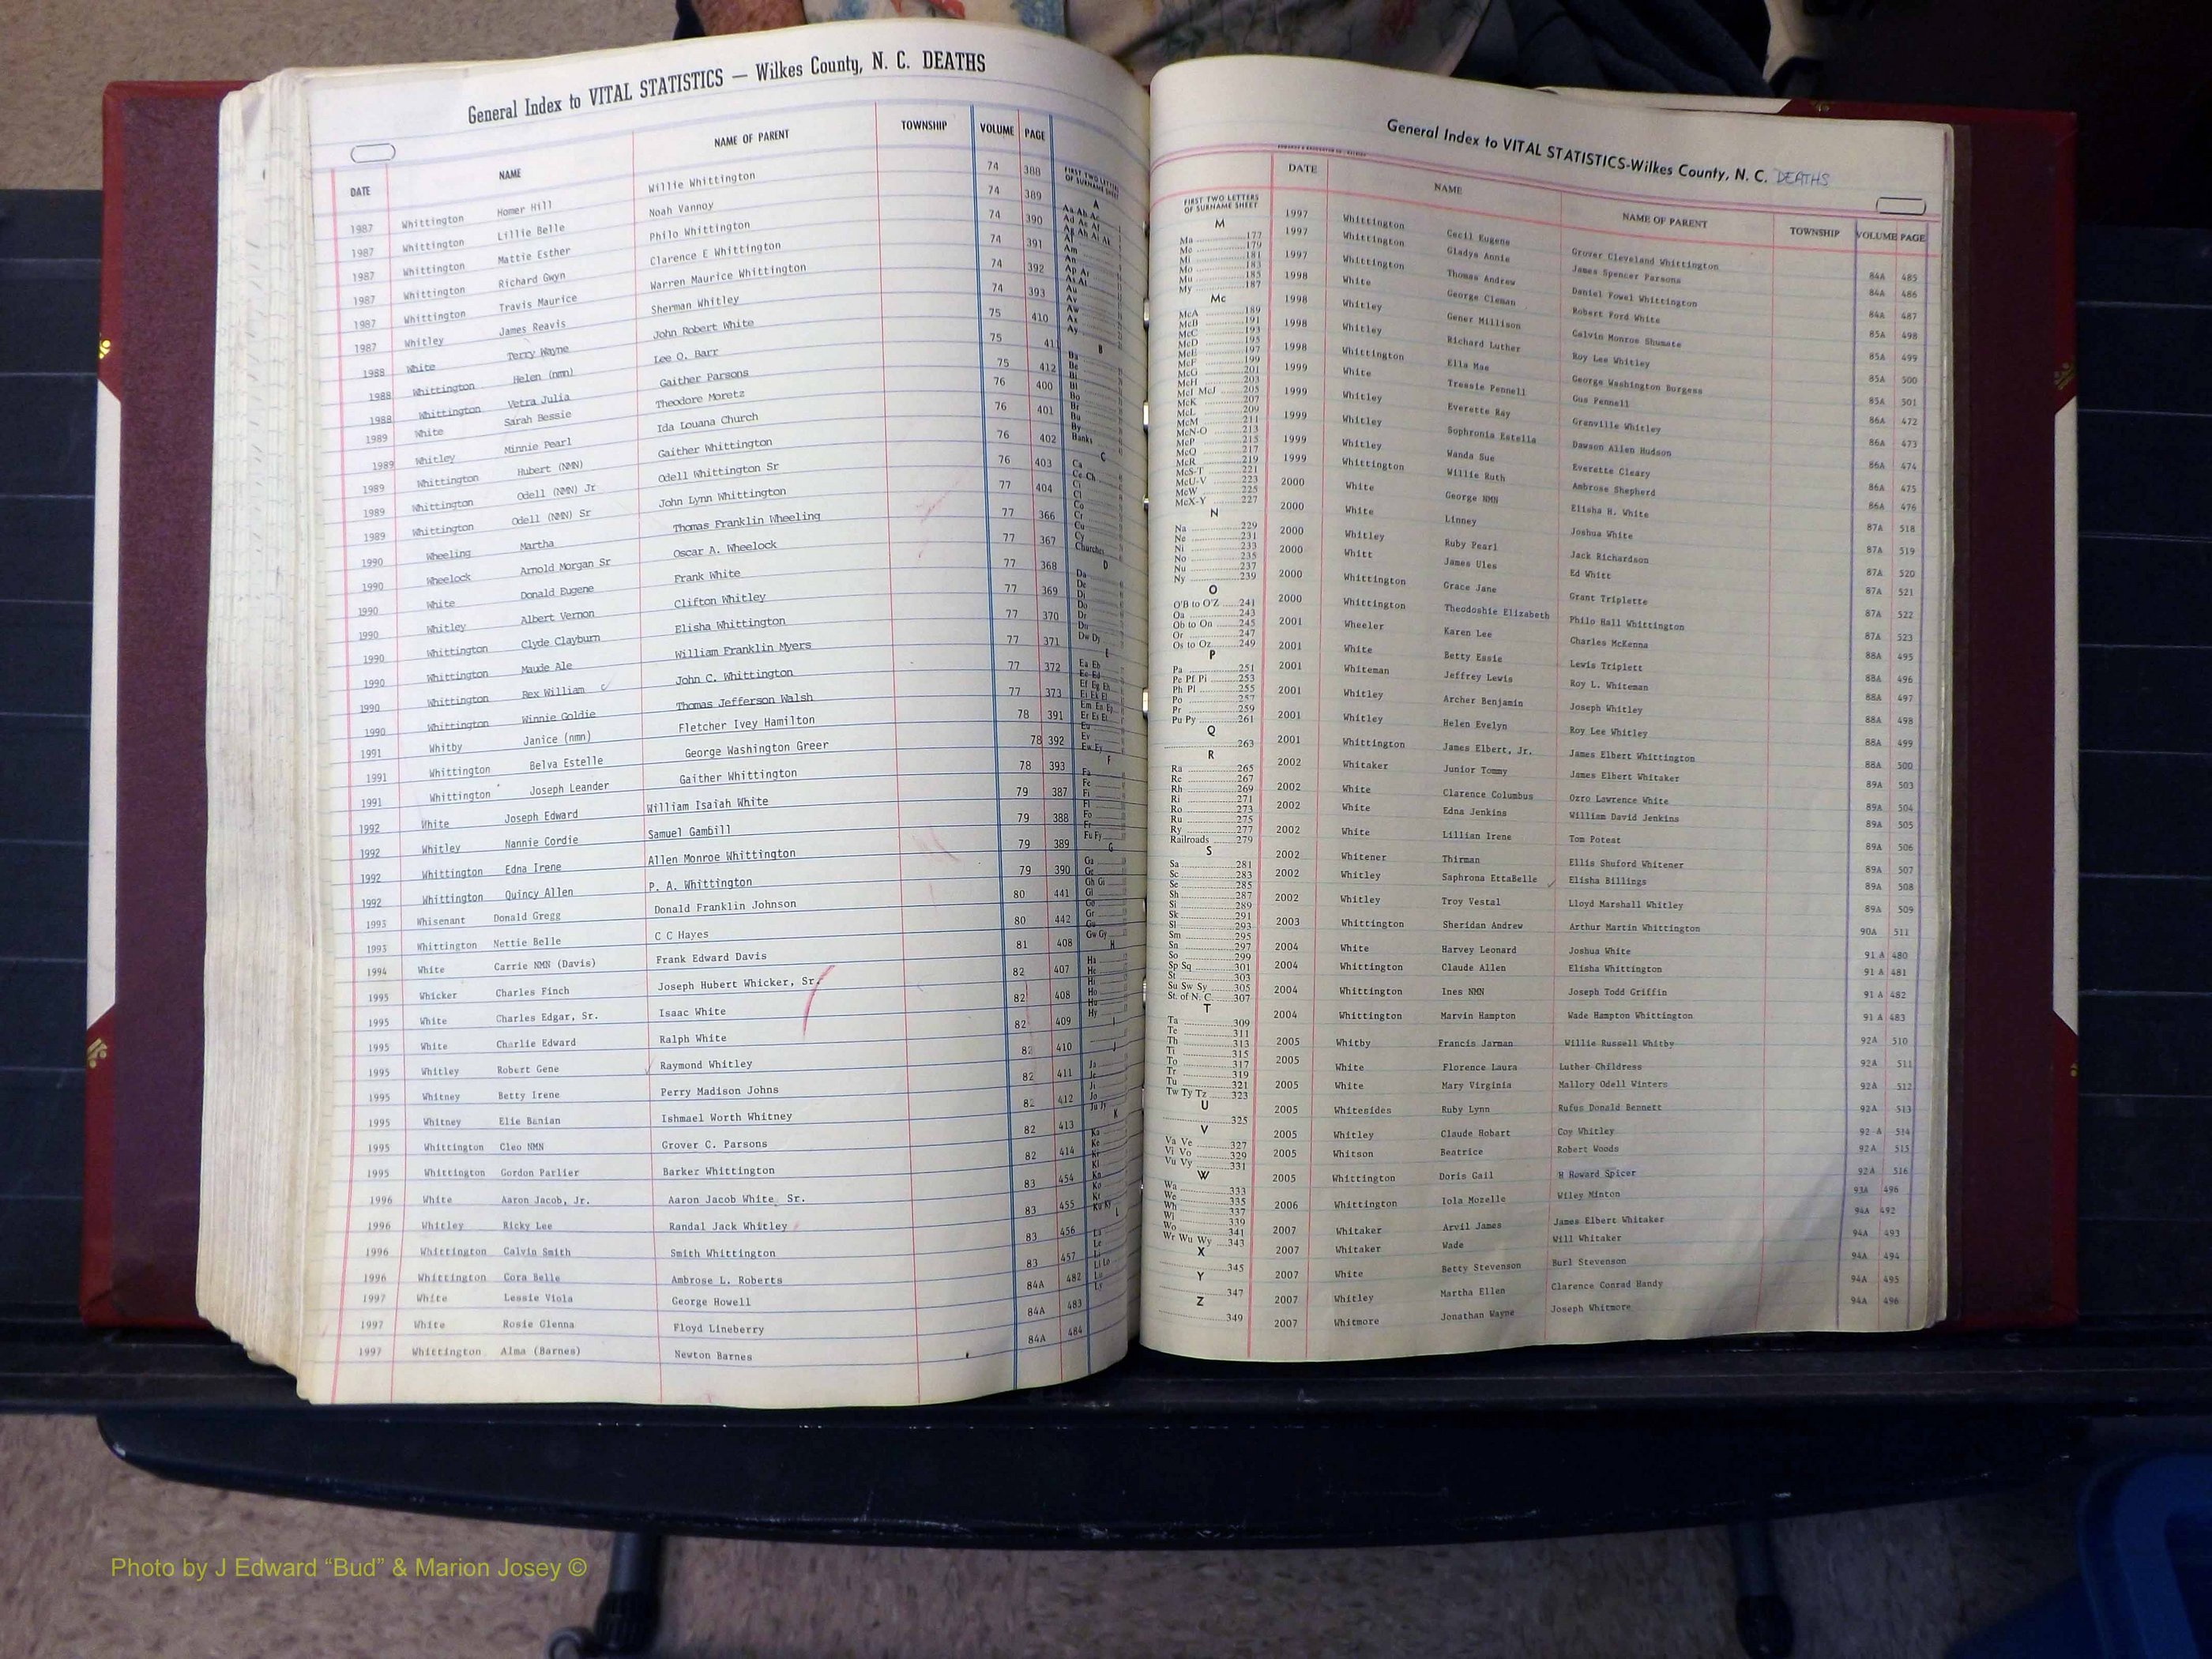 General Index to VITAL STATISTICS — Wilkes County, N. C. DEATHS
DATE NAME NAME OF PARENT TOWNSHIP VOLUME PAGE
1987 Whittington Homer Hill Willie Whittington 74 388
1987 Whittington Lillie Belle Noah Vannoy 74 389
1987 Whittington Mattie Esther Philo Whittington 74 390
1987 Whittington Richard Gwyn Clarence E Whittington 74 391
1987 Whittington Travis Maurice Warren Maurice Whittington 74 392
1987 Whitley James Reavis Sherman Whitley 74 393
1988 White Terry Wayne John Robert White 75 410
1988 Whittington Helen (nmn) Lee O. Barr 75 411
1988 Whittington Vetra Julia Gaither Parsons 75 412
1989 White Sarah Bessie Theodore Moretz 76 400
1989 Whitley Minnie Pearl Ida Louana Church 76 401
1989 Whittington Hubert (NMN) Gaither Whittington 76 402
1989 Whittington Odell (NMN) Jr Odell Whittington Sr 76 403
1989 Whittington Odell (NMN) Sr John Lynn Whittington 77 404
1990 Wheeling Martha Thomas Franklin Wheeling 77 366
1990 Wheelock Arnold Morgan Sr Oscar A. Wheelock 77 367
1990 White Donald Eugene Frank White 77 368
1990 Whitley Albert Vernon Clifton Whitley 77 369
1990 Whittington Clyde Clayburn Elisha Whittington 77 370
1990 Whittington Maude Ale William Franklin Myers 77 371
1990 Whittington Rex William John C. Whittington 77 372
1990 Whittington Winnie Goldie Thomas Jefferson Walsh 77 373
1991 Whitby Janice (nmn) Fletcher Ivey Hamilton 78 391
1991 Whittington Belva Estelle George Washington Greer 78 392
1991 Whittington Joseph Leander Gaither Whittington 78 393
1992 White Joseph Edward William Isaiah White 79 387
1992 Whitley Nannie Cordie Samuel Gambill 79 388
1992 Whittington Edna Irene Allen Monroe Whittington 79 389
1992 Whittington Quincy Allen P. A. Whittington 79 390
1993 Whisenant Donald Gregg Donald Franklin Johnson 80 441
1993 Whittington Nettie Belle C C Hayes 80 442
1994 White Carrie NMN (Davis) Frank Edward Davis 81 408
1995 Whicker Charles Finch Joseph Hubert Whicker, Sr. 82 407
1995 White Charles Edgar, Sr. Isaac White 82 408
1995 White Charlie Edward Ralph White 82 409
1995 Whitley Robert Gene Raymond Whitley 82 410
1995 Whitney Betty Irene Perry Madison Johns 82 411
1995 Whitney Elie Banian Ishmael Worth Whitney 82 412
1995 Whittington Cleo NMN Grover C. Parsons 82 413
1995 Whittington Gordon Parlier Barker Whittington 82 414
1996 White Aaron Jacob, Jr. Aaron Jacob White Sr. 83 454
1996 Whitley Ricky Lee Randal Jack Whitley 83 455
1996 Whittington Calvin Smith Smith Whittington 83 456
1996 Whittington Cora Belle Ambrose L. Roberts 83 457
1997 White Lessie Viola George Howell 84A 482
1997 White Rosie Glenna Floyd Lineberry 84A 483
1997 Whittington Alma (Barnes) Newton Barnes 84A 484
FIRST TWO LETTERS
OF SURNAME SHEET
A
B
Banks
C
Churches
D
General Index to VITAL STATISTICS-Wilkes County, N. C. DEATHS
DATE NAME NAME OF PARENT TOWNSHIP VOLUME PAGE
1997 Whittington Cecil Eugene Grover Cleveland Whittington 84A 485
1997 Whittington Gladys Annie James Spencer Parsons 84A 486
1997 Whittington Thomas Andrew Daniel Fowel Whittington 84A 487
1998 White George Cleman Robert Ford White 85A 498
1998 Whitley Gener Millison Calvin Monroe Shumate 85A 499
1998 Whitley Richard Luther Roy Lee Whitley 85A 500
1998 Whittington Ella Mae George Washington Burgess 85A 501
1999 White Tressie Pennell Gus Pennell 86A 472
1999 Whitley Everette Ray Granville Whitley 86A 473
1999 Whitley Sophronia Estella Dawson Allen Hudson 86A 474
1999 Whitley Wanda Sue Everette Cleary 86A 475
1999 Whittington Willie Ruth Ambrose Shepherd 86A 476
2000 White George NMN Elisha H. White 87A 518
2000 White Linney Joshua White 87A 519
2000 Whitley Ruby Pearl Jack Richardson 87A 520
2000 Whitt James Ules Ed Whitt 87A 521
2000 Whittington Grace Jane Grant Triplette 87A 522
2000 Whittington Theodoshie Elizabeth Philo Hall Whittington 87A 523
2001 Wheeler Karen Lee Charles McKenna 88A 495
2001 White Betty Essie Lewis Triplett 88A 496
2001 Whiteman Jeffrey Lewis Roy L. Whiteman 88A 497
2001 Whitley Archer Benjamin Joseph Whitley 88A 498
2001 Whitley Helen Evelyn Roy Lee Whitley 88A 499
2001 Whittington James Elbert, Jr. James Elbert Whittington 88A 500
2002 Whitaker Junior Tommy James Elbert Whitaker 89A 503
2002 White Clarence Columbus Ozro Lawrence White 89A 504
2002 White Edna Jenkins William David Jenkins 89A 505
2002 White Lillian Irene Tom Poteat 89A 506
2002 Whitener Thirman Ellis Shuford Whitener 89A 507
2002 Whitley Saphrona EttaBelle Elisha Billings 89A 508
2002 Whitley Troy Vestal Lloyd Marshall Whitley 89A 509
2003 Whittington Sheridan Andrew Arthur Martin Whittington 90A 511
2004 White Harvey Leonard Joshua White 91 A 480
2004 Whittington Claude Allen Elisha Whittington 91 A 481
2004 Whittington Ines NMN Joseph Todd Griffin 91 A 482
2004 Whittington Marvin Hampton Wade Hampton Whittington 91 A 483
2005 Whitby Francis Jarman Willie Russell Whitby 92A 510
2005 White Florence Laura Luther Childress 92A 511
2005 White Mary Virginia Mallory Odell Winters 92A 512
2005 Whitesides Ruby Lynn Rufus Donald Bennett 92A 513
2005 Whitley Claude Hobart Coy Whitley 92 A 514
2005 Whitson Beatrice Robert Woods 92A 515
2005 Whittington Doris Gail H Howard Spicer 92A 516
2006 Whittington Iola Mozelle Wiley Minton 93A 496
2007 Whitaker Arvil James James Elbert Whitaker 94A 492
2007 Whitaker Wade Will Whitaker 94A 493
2007 White Betty Stevenson Burl Stevenson 94A 494
2007 Whitley Martha Ellen Clarence Conrad Handy 94A 495
2007 Whitmore Jonathan Wayne Joseph Whitmore 94A 496
FIRST TWO LETTERS
OF SURNAME SHEET
M
Ma 177
Me 179
Mi 181
Mo 183
Mu 185
My 187
Mc
McA 189
McB 191
McC 193
McD 195
McE 197
McF 199
McG 201
McH 203
McI McJ 205
McK 207
McL 209
McM 211
McN-O 213
McP 215
McQ 217
McR 219
McS-T 221
McU-V 223
McW 225
McX-Y 227
N
Na 229
Ne 231
Ni 233
No 235
Nu 237
Ny 239
O
O'B to O'Z 241
Oa 243
Ob to On 245
Or 247
Os to Oz 249
P
Pa 251
Pe Pf Pi 253
Ph Pl 255
Po 257
Pr 259
Pu Py 261
Q
263
R
Ra 265
Re 267
Rh 269
Ri 271
Ro 273
Ru 275
Ry 277
Railroads 279
S
Sa 281
Sc 283
Se 285
Sh 287
Si 289
Sk 291
Sl 293
Sm 295
Sn 297
So
Sp Sq 301
St 303
Su Sw Sy 305
St. of N. C. 307
T
Ta 309
Te 311
Th 313
Ti 315
To 317
Tr 319
Tu 321
Tw Ty Tz 323
U
325
V
Va Ve 327
Vi Vo 329
Vu Vy 331
W
Wa 333
We 335
Wh 337
Wi 339
Wo 341
Wr Wu Wy 343
X
345
Y
347
Z
349
Photo by J Edward “Bud” & Marion Josey ©